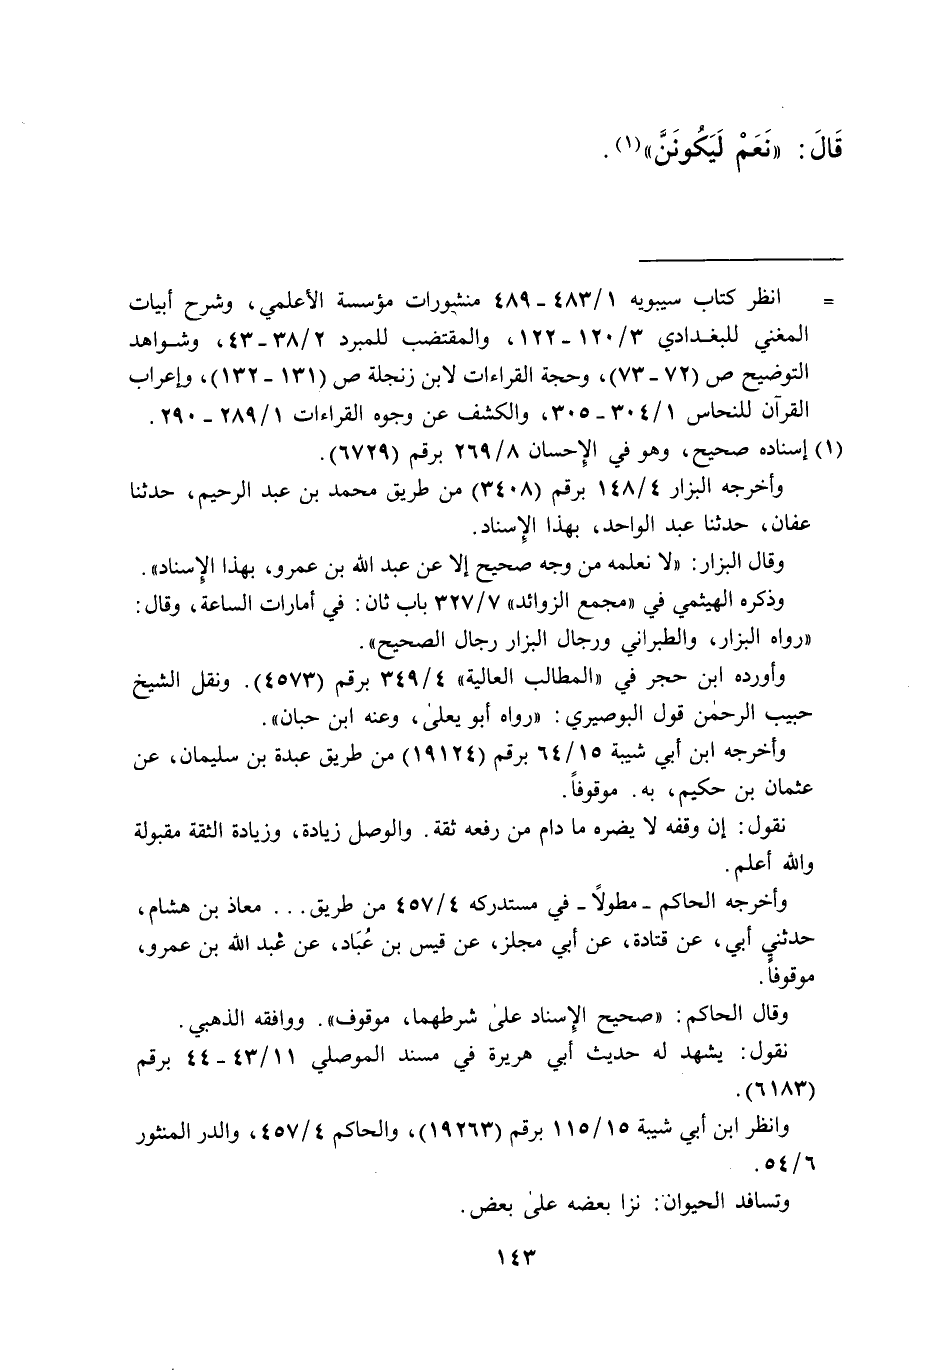 قَالَ: «نَعَمْ لَيَكُونَنَّ»(١).
= انظر كتاب سيبويه ٤٨٣/١ - ٤٨٩ منشورات مؤسسة الأعلمي، وشرح أبيات
المغني للبغدادي ١٢٠/٣ - ١٢٢، والمقتضب للمبرد ٣٨/٢ - ٤٣، وشواهد
التوضيح ص (٧٢ - ٧٣)، وحجة القراءات لابن زنجلة ص (١٣١ - ١٣٢)، وإعراب
القرآن للنحاس ٣٠٤/١ - ٣٠٥، والكشف عن وجوه القراءات ٢٨٩/١ - ٢٩٠.
(١) إسناده صحيح، وهو في الإحسان ٢٦٩/٨ برقم (٦٧٢٩).
وأخرجه البزار ١٤٨/٤ برقم (٣٤٠٨) من طريق محمد بن عبد الرحيم، حدثنا
عفان، حدثنا عبد الواحد، بهذا الإسناد.
وقال البزار: «لا نعلمه من وجه صحيح إلا عن عبد الله بن عمرو، بهذا الإسناد».
وذكره الهيثمي في «مجمع الزوائد» ٣٢٧/٧ باب ثان: في أمارات الساعة، وقال:
«رواه البزار، والطبراني ورجال البزار رجال الصحيح».
وأورده ابن حجر في «المطالب العالية» ٣٤٩/٤ برقم (٤٥٧٣). ونقل الشيخ
حبيب الرحمٰن قول البوصيري: «رواه أبو يعلىٰ، وعنه ابن حبان».
وأخرجه ابن أبي شيبة ٦٤/١٥ برقم (١٩١٢٤) من طريق عبدة بن سليمان، عن
عثمان بن حكيم، به. موقوفاً.
نقول: إن وقفه لا يضره ما دام من رفعه ثقة. والوصل زيادة، وزيادة الثقة مقبولة
والله أعلم.
وأخرجه الحاكم - مطولاً - في مستدركه ٤٥٧/٤ من طريق... معاذ بن هشام،
حدثني أبي، عن قتادة، عن أبي مجلز، عن قيس بن عُبَاد، عن عبد الله بن عمرو،
موقوفاً.
وقال الحاكم: «صحيح الإسناد علىٰ شرطهما، موقوف». ووافقه الذهبي.
نقول: يشهد له حديث أبي هريرة في مسند الموصلي ٤٣/١١ - ٤٤ برقم
(٦١٨٣).
وانظر ابن أبي شيبة ١١٥/١٥ برقم (١٩٢٦٣)، والحاكم ٤٥٧/٤، والدر المنثور
٥٤/٦.
وتسافد الحيوان: نزا بعضه علىٰ بعض.
١٤٣